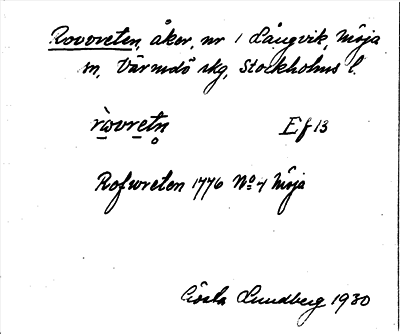 Rovvreten, åker, nr 1 Långvik, Möja
sn, Värmdö skg, Stockholms l.
Ef 13
Rofwreten 1776 No 4 Möja
Gösta Lundberg 1930